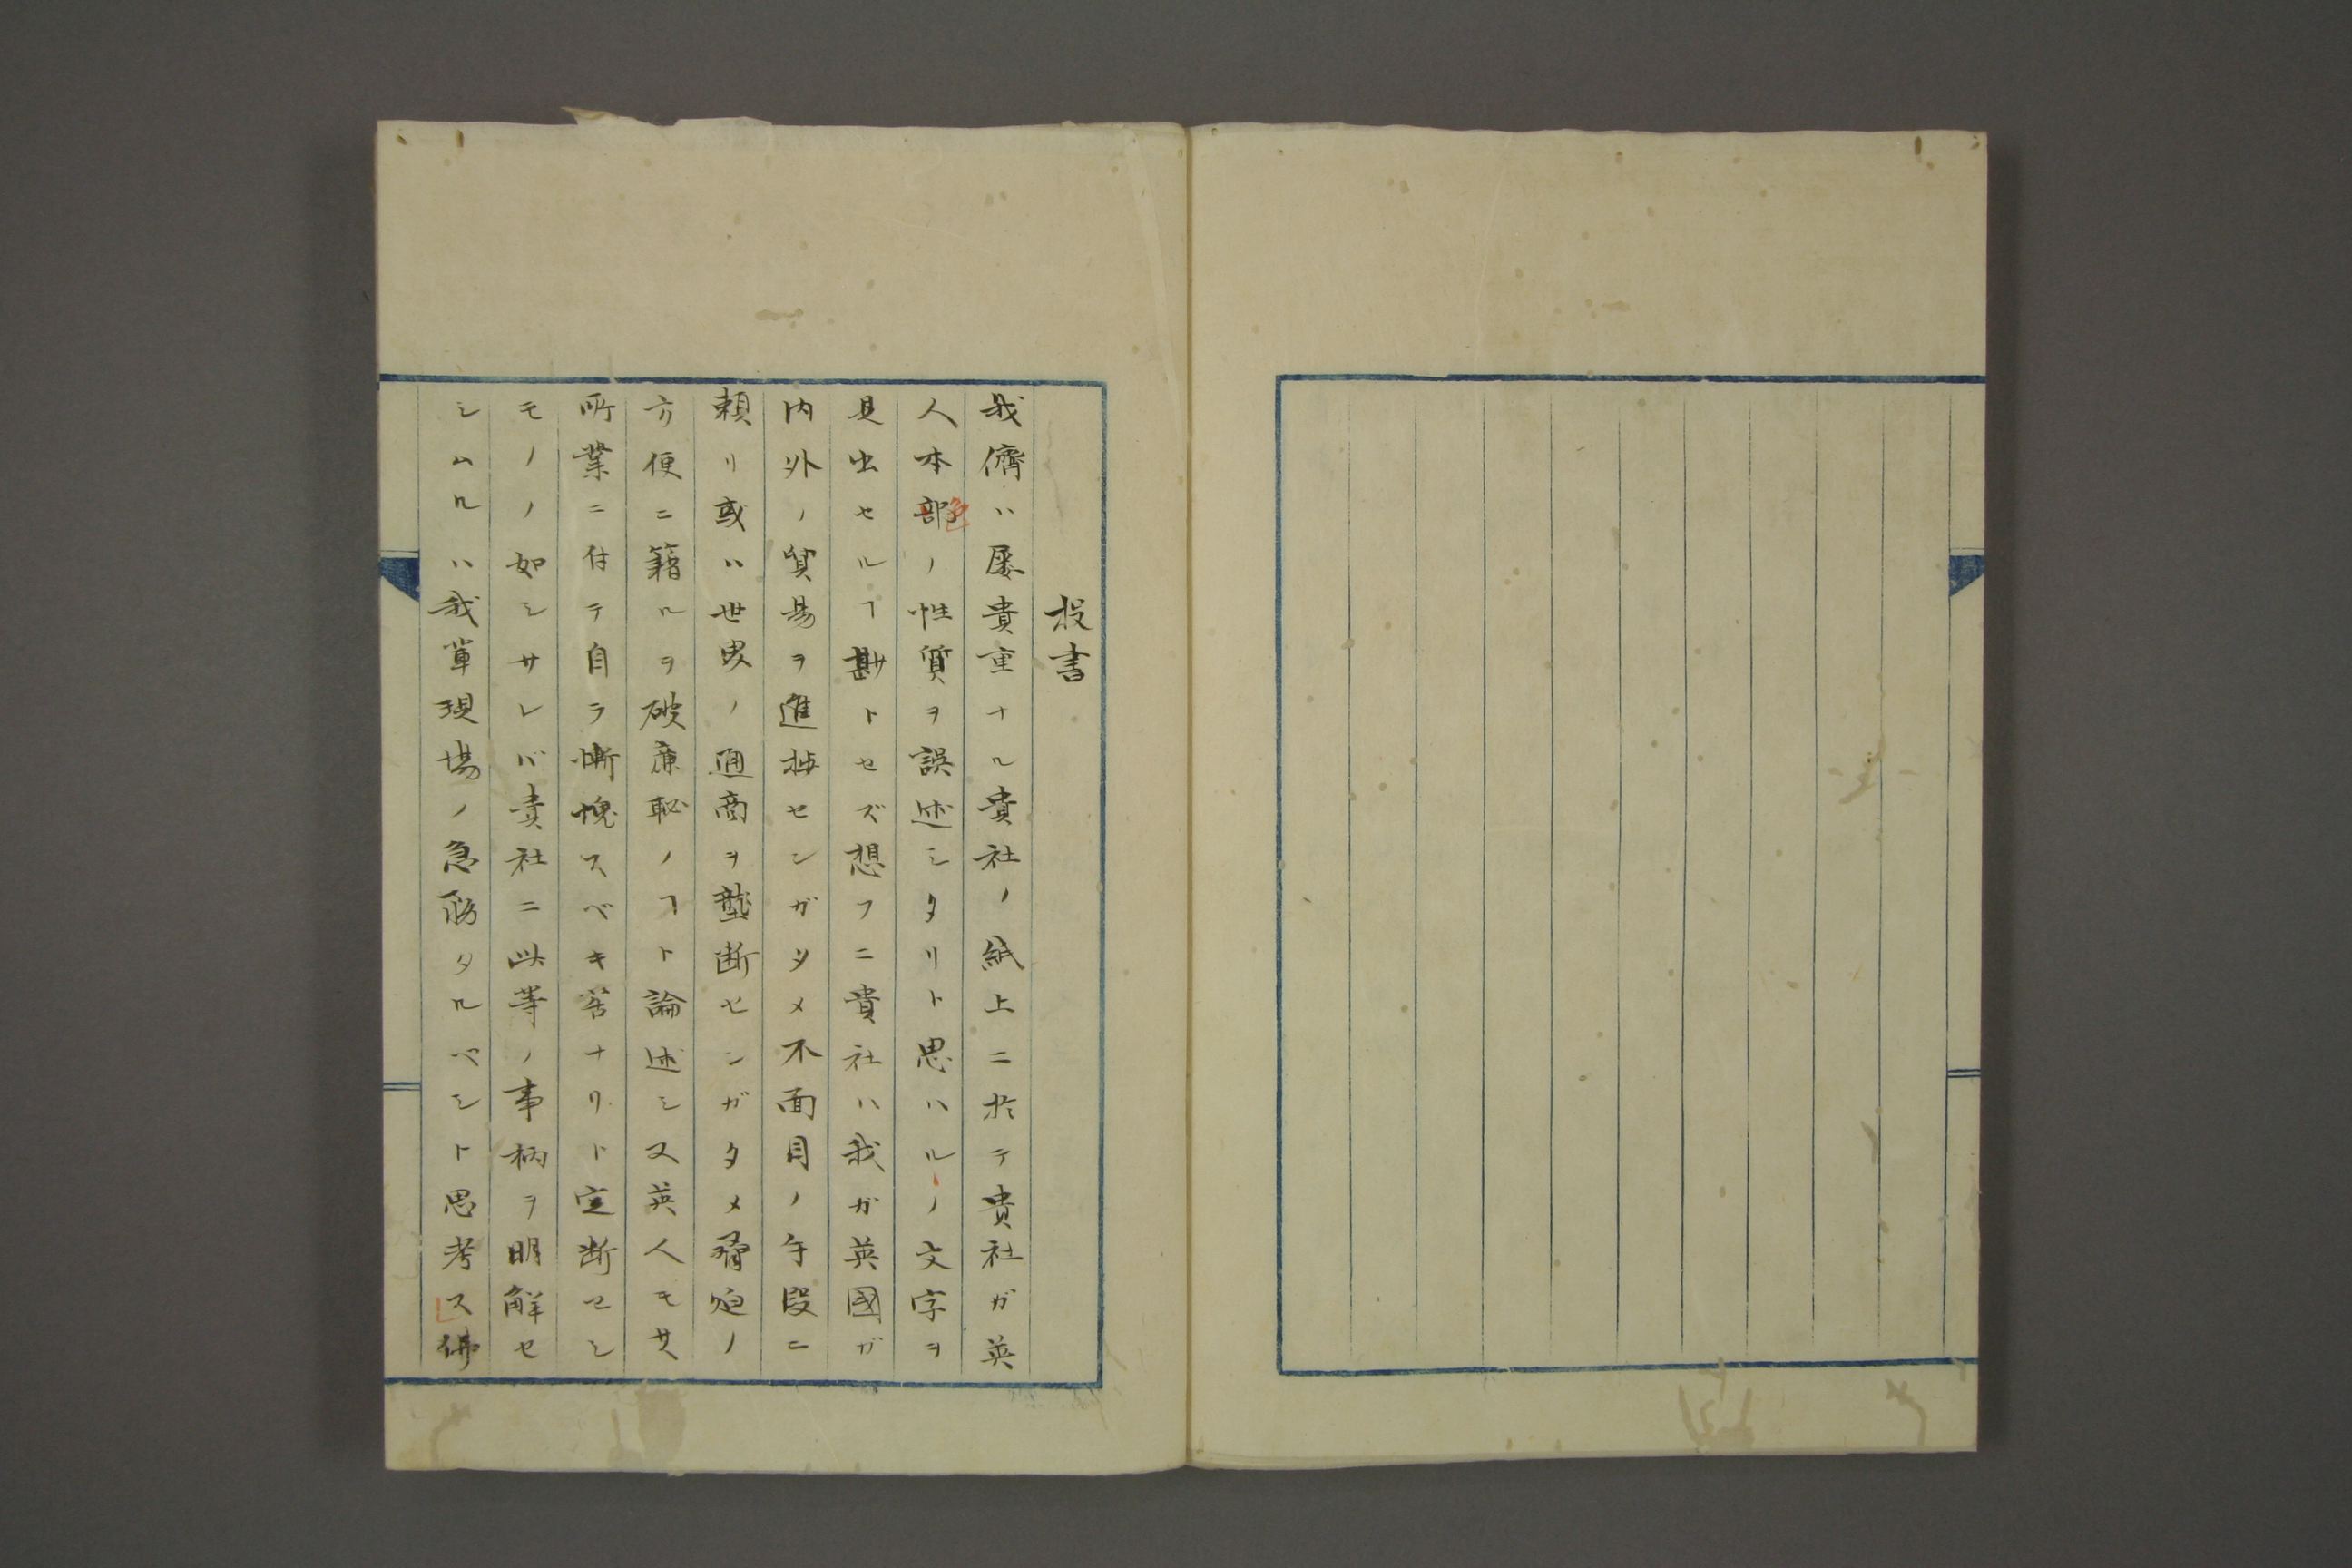 投書
我儕ハ屡貴重ナル貴社ノ紙上ニ於テ貴社ガ英
人本部色ノ性質ヲ誤述シタリト思ハルヽノ文字ヲ
見出セルヿ尠トセズ想フニ貴社ハ我ガ英國ガ
内外ノ貿易ヲ進捗センガタメ不面目ノ手段ニ
頼リ或ハ世界ノ通商ヲ壟断センガタメ脅迫ノ
方便ニ籍ルヲ破廉耻ノヿト論述シ又英人モ其
所業ニ付テ自ラ慚愧スベキ筈ナリト定断セシ
モノヽ如シサレバ貴社ニ此等ノ事柄ヲ明解セ
シムルハ我軰現場ノ急務タルベシト思考ス佛